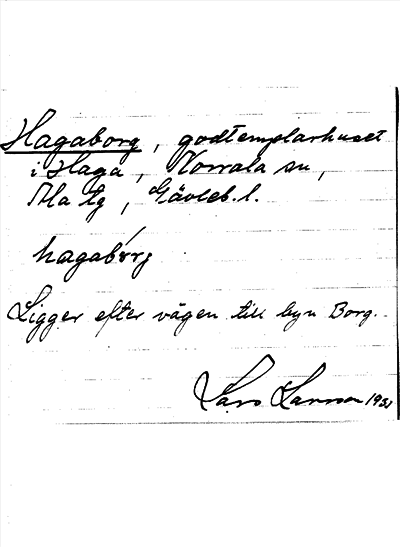 Hagaborg, godtemplarhuset
i Haga, Norrala sn,
Ma tg, Gävleb. l.
hagabórj
Ligger efter vägen till byn Borg.
Lars Larsson